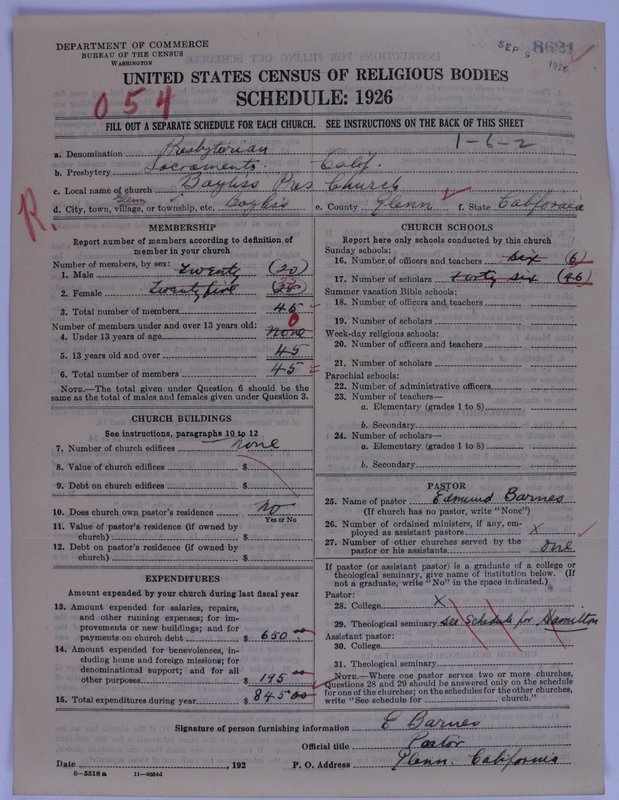 DEPARTMENT OF COMMERCE
BUREAU OF THE CENSUS
WASHINGTON
SEP 9 1926
8621
UNITED STATES CENSUS OF RELIGIOUS BODIES
SCHEDULE: 1926
054
FILL OUT A SEPARATE SCHEDULE FOR EACH CHURCH. SEE INSTRUCTIONS ON THE BACK OF THIS SHEET
1-6-2
a. Denomination Presbyterian
b. Presbytery Sacramento Calif.
c. Local name of church Bayliss Pres Church
d. City, town, village, or township, etc. Glenn Bayliss e. County Glenn f. State California
R.
MEMBERSHIP
Report number of members according to definition of member in your church
Number of members, by sex:
1. Male twenty (20)
2. Female twenty five (25)
3. Total number of members 45
Number of members under and over 13 years old:
4. Under 13 years of age none 0
5. 13 years old and over 45
6. Total number of members 45
NOTE.—The total given under Question 6 should be the same as the total of males and females given under Question 3.
CHURCH BUILDINGS
See instructions, paragraphs 10 to 12
7. Number of church edifices none
8. Value of church edifices $
9. Debt on church edifices $
10. Does church own pastor's residence no
Yes or No
11. Value of pastor's residence (if owned by church) $
12. Debt on pastor's residence (if owned by church) $
EXPENDITURES
Amount expended by your church during last fiscal year
13. Amount expended for salaries, repairs, and other running expenses; for improvements or new buildings; and for payments on church debt $ 650 00
14. Amount expended for benevolences, including home and foreign missions; for denominational support; and for all other purposes $ 195 00
15. Total expenditures during year $ 845 00
CHURCH SCHOOLS
Report here only schools conducted by this church
Sunday schools:
16. Number of officers and teachers six (6)
17. Number of scholars forty six (46)
Summer vacation Bible schools:
18. Number of officers and teachers
19. Number of scholars
Week-day religious schools:
20. Number of officers and teachers
21. Number of scholars
Parochial schools:
22. Number of administrative officers
23. Number of teachers—
a. Elementary (grades 1 to 8)
b. Secondary
24. Number of scholars—
a. Elementary (grades 1 to 8)
b. Secondary
PASTOR
25. Name of pastor Edmund Barnes
(If church has no pastor, write "None")
26. Number of ordained ministers, if any, employed as assistant pastors x
27. Number of other churches served by the pastor or his assistants one
If pastor (or assistant pastor) is a graduate of a college or theological seminary, give name of institution below. (If not a graduate, write "No" in the space indicated.)
Pastor:
28. College X
29. Theological seminary See Schedule for Hamilton
Assistant pastor:
30. College
31. Theological seminary
NOTE.—Where one pastor serves two or more churches, Questions 28 and 29 should be answered only on the schedule for one of the churches; on the schedules for the other churches, write "See schedule for church."
Signature of person furnishing information E Barnes
Official title Pastor
Date , 192 P. O. Address Glenn. California
8—5518 a